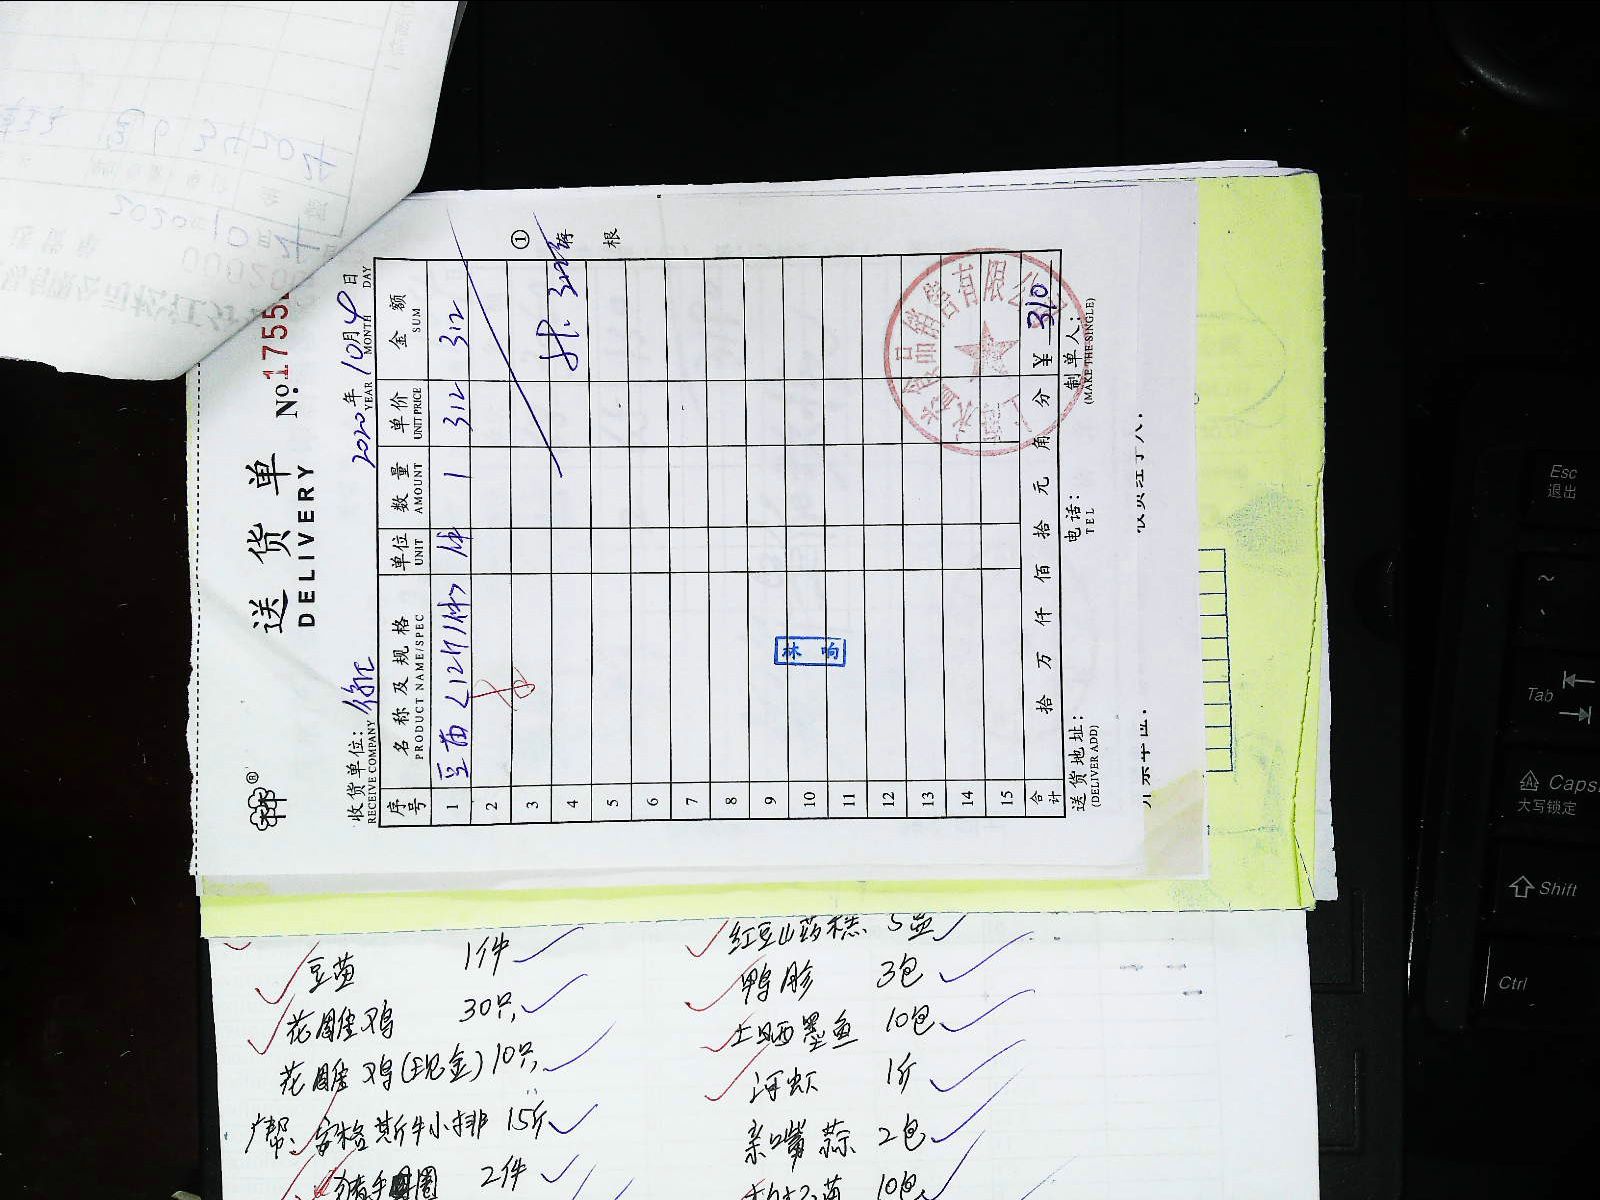 送货单
DELIVERY
No. 1755
收货单位：
RECEIVE COMPANY
2020年10月4日
YEAR MONTH DAY
序号 名称及规格 单位 数量 单价 金额
PRODUCT NAME/SPEC UNIT AMOUNT UNIT PRICE SUM
1 豆苗 1 312 312
2
3
4
5
6
7
8
9
10
11
12
13
14
15
合计 拾 万 仟 佰 拾 元 角 分 ¥ 310
送货地址： 电话： 制单人：
(DELIVER ADD) TEL (MAKE THE SINGLE)
① 存根
品销售有限公
2020 10
豆苗 1件
花雕鸡 30只
花雕鸡(现金) 10只
广帮： 安格斯牛小排 15斤
2件
红豆山药糕 5盒
鸭胗 3包
土晒墨鱼 10包
河虾 1斤
亲嘴蒜 2包
10包
Esc
退出
~
Tab
Caps
大写锁定
Shift
Ctrl